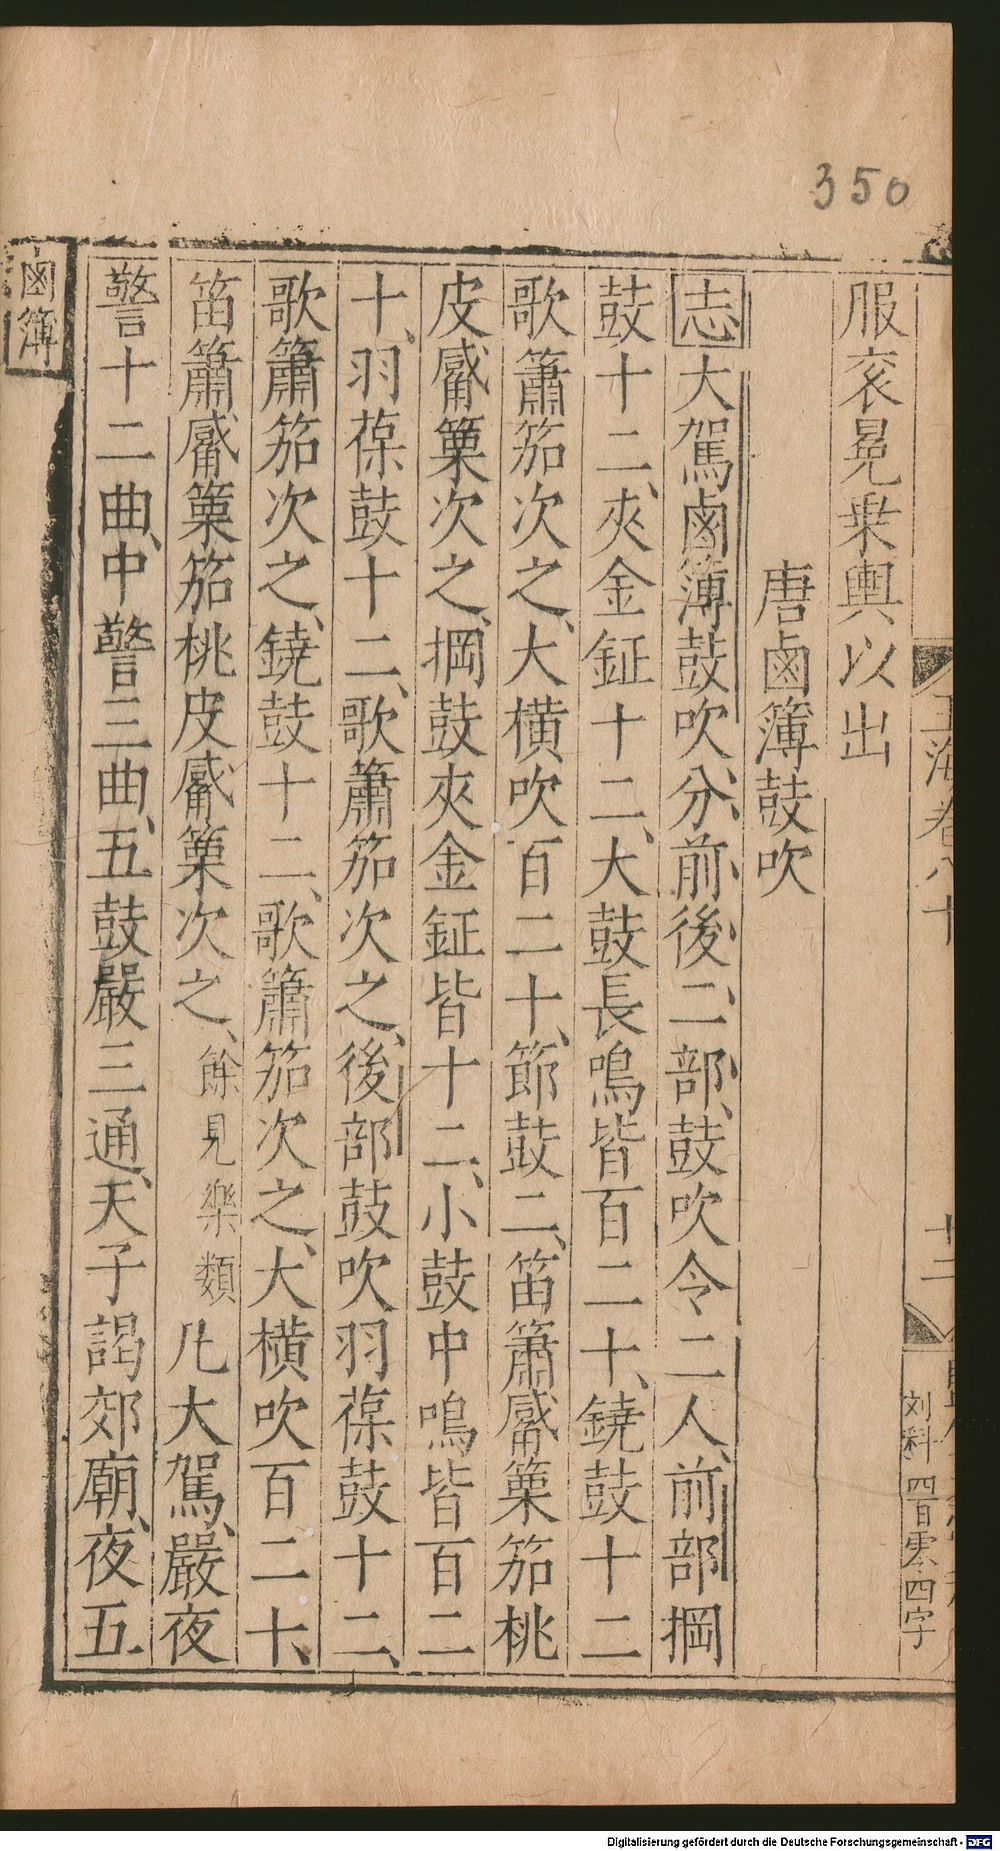 350
服衮冕乗輿以出
唐鹵簿鼓吹
志大駕鹵簿鼓吹、分前後二部、鼓吹令二人、前部㭎
鼓十二、夾金鉦十二、大鼓長鳴皆百二十、鐃鼓十二
歌簫笳次之、大横吹百二十、節鼓二、笛簫觱篥笳桃
皮觱篥次之、㭎鼓夾金鉦皆十二、小鼓中鳴皆百二
十、羽葆鼓十二、歌簫笳次之、後部鼓吹羽葆鼓十二、
歌簫笳次之、鐃鼓十二、歌簫笳次之、大横吹百二十、
笛簫觱篥笳桃皮觱篥次之、餘見樂類 凡大駕、嚴夜
警十二曲、中警三曲、五鼓嚴三通、天子謁郊廟、夜五
鹵簿
玉海卷八十
十二
刘科 四百零四字
Digitalisierung gefördert durch die Deutsche Forschungsgemeinschaft - DFG